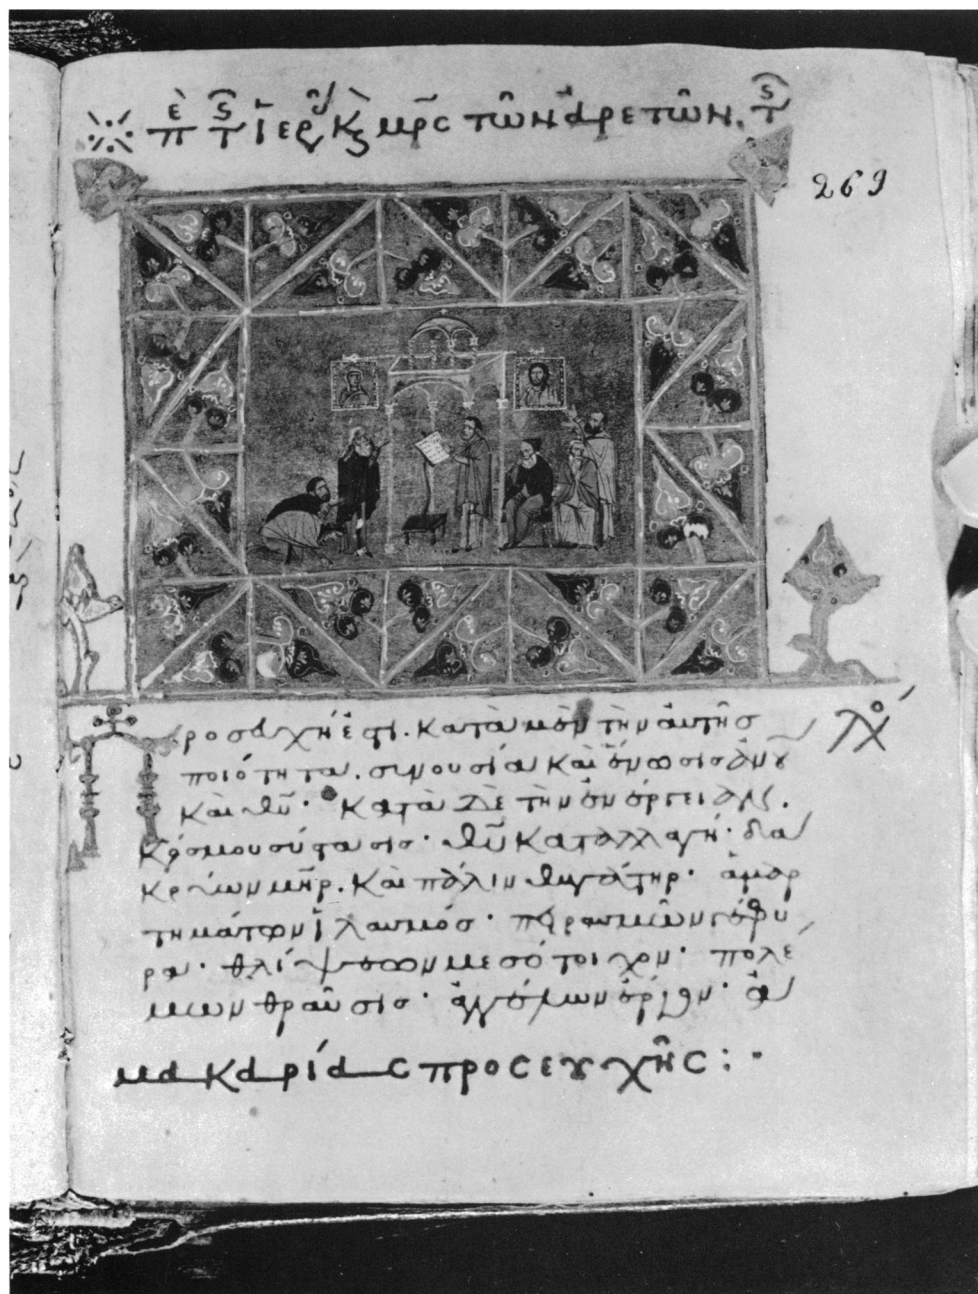 τῶν ἀρετῶν.
269
Προσευχή ἐστι. κατὰ μὲν τὴν αὐτῆς
ποιότητα. συνουσία καὶ ἕνωσις ἀνου
καὶ θῦ· κατὰ δὲ τὴν ἐνέργειαν.
κόσμου σύστασις· θῦ καταλλαγή· δα
κρύων μῆρ. καὶ πάλιν θυγάτηρ· ἁμαρ
τημάτων ἱλασμός· πειρασμῶν γέφυ
ρα· θλίψεων μεσότοιχον· πολέ
μων θραῦσις· ἀγγέλων ἔργον· ἁ
μακαρίας προσευχῆς:·